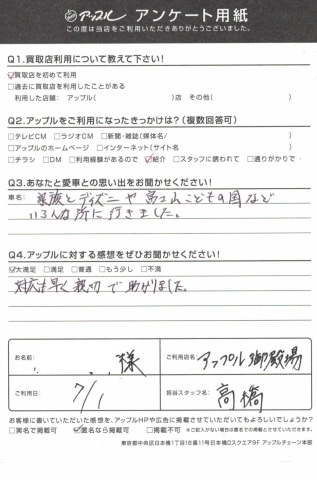 アップル アンケート用紙
この度は当店をご利用いただきありがとうございました。
Q1.買取店利用について教えて下さい!
☑買取店を初めて利用
□過去に買取店を利用したことがある
利用した店舗: アップル( )店 その他( )
Q2.アップルをご利用になったきっかけは?(複数回答可)
□テレビCM □ラジオCM □新聞・雑誌(媒体名/ )
□アップルのホームページ □インターネット(サイト名 )
□チラシ □DM □利用経験があるので ☑紹介 □スタッフに誘われて □通りがかりで
Q3.あなたと愛車との思い出をお聞かせください!
車名: 家族とディズニーや富士山こどもの国など
いろんな所に行きました。
Q4.アップルに対する感想をぜひお聞かせください!
☑大満足 □満足 □普通 □もう少し □不満
対応も早く親切で助かりました。
お名前: 様
ご利用店名: アップル御殿場
ご利用日: 7/1
担当スタッフ名: 高橋
お客様に書いていただいた感想を、アップルHPや広告に掲載させていただいてもよろしいでしょうか?
□実名で掲載可 ☑匿名なら掲載可 □掲載不可 ※ご記入がない場合は匿名での掲載とさせていただきます。
東京都中央区日本橋1丁目16番11号日本橋Dスクエア9F アップルチェーン本部